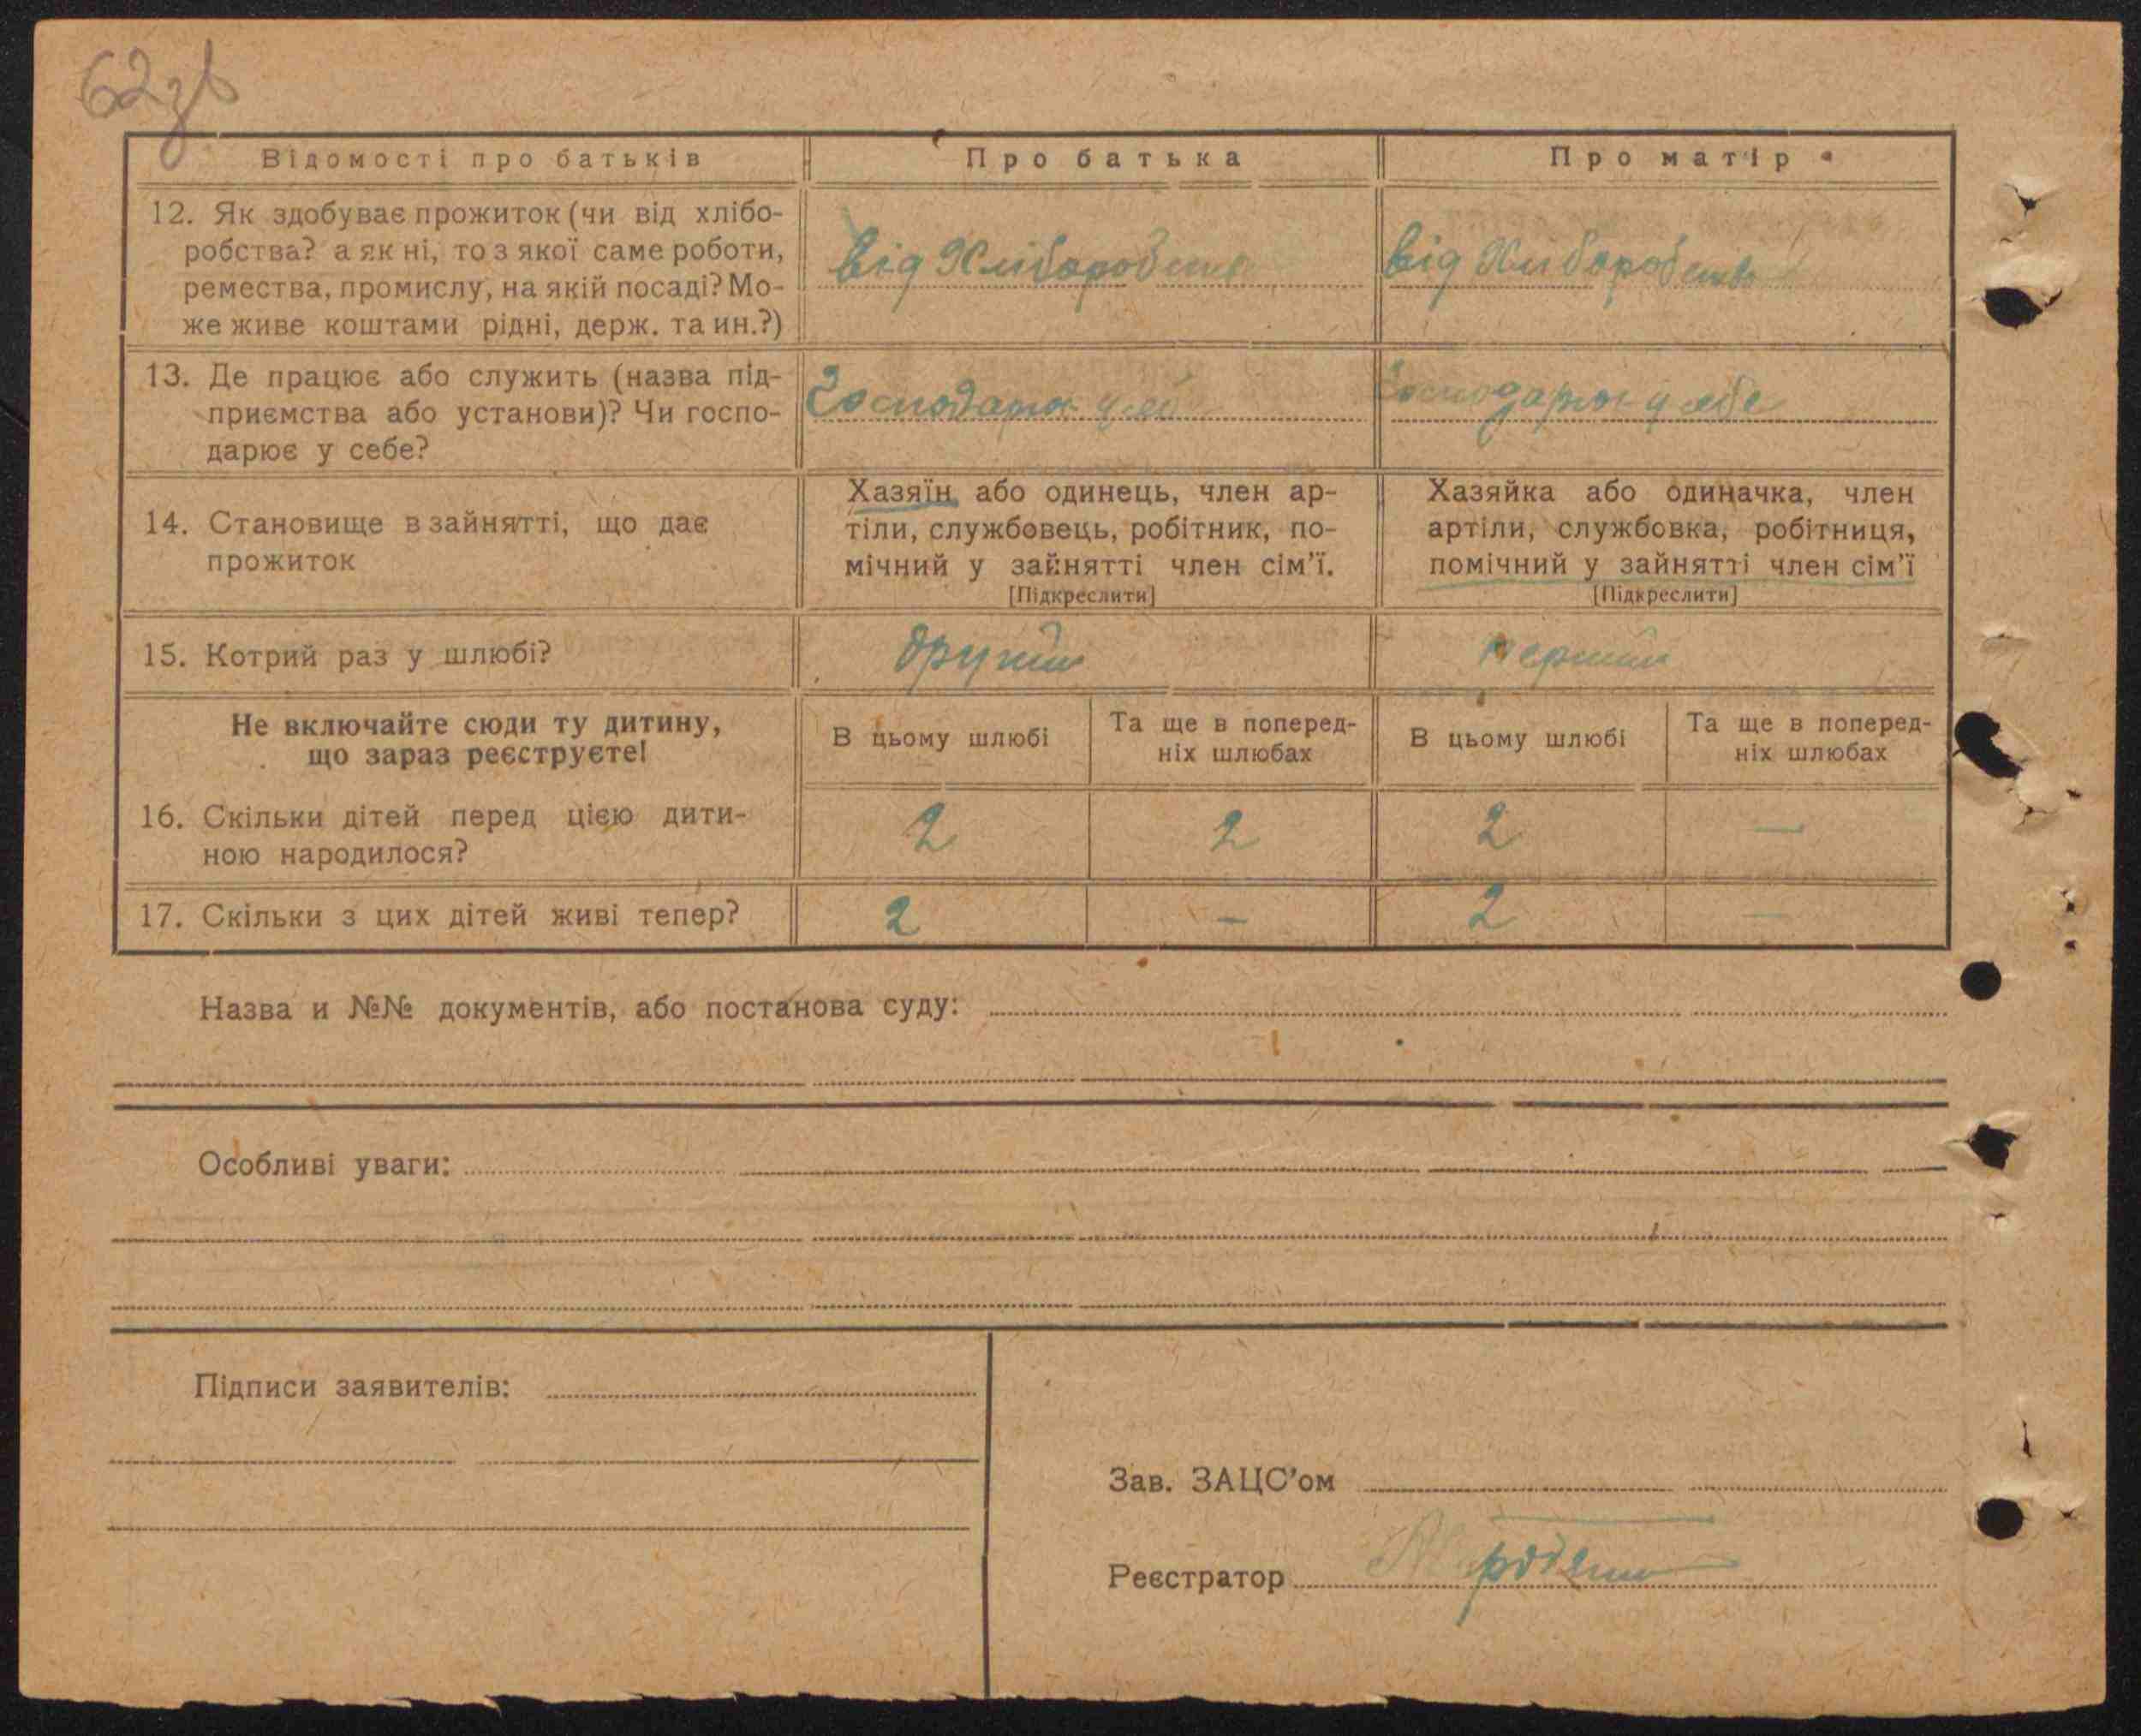 62зв
Відомості про батьків
Про батька
Про матір
12. Як здобуває прожиток (чи від хлібо-
робства? а як ні, то з якої саме роботи,
ремества, промислу, на якій посаді? Мо-
же живе коштами рідні, держ. та ин.?)
від Хліборобства
від Хліборобства
13. Де працює або служить (назва під-
приємства або установи)? Чи госпо-
дарює у себе?
Господарює у себе
Господарює у себе
14. Становище в зайнятті, що дає
прожиток
Хазяїн або одинець, член ар-
тіли, службовець, робітник, по-
мічний у зайнятті член сім'ї.
[Підкреслити]
Хазяйка або одиначка, член
артіли, службовка, робітниця,
помічний у зайнятті член сім'ї
[Підкреслити]
15. Котрий раз у шлюбі?
другий
перший
Не включайте сюди ту дитину,
що зараз реєструєте!
В цьому шлюбі
Та ще в поперед-
ніх шлюбах
В цьому шлюбі
Та ще в поперед-
ніх шлюбах
16. Скільки дітей перед цією дити-
ною народилося?
2
2
2
—
17. Скільки з цих дітей живі тепер?
2
—
2
—
Назва и №№ документів, або постанова суду:
Особливі уваги:
Підписи заявителів:
Зав. ЗАЦС'ом
Реєстратор